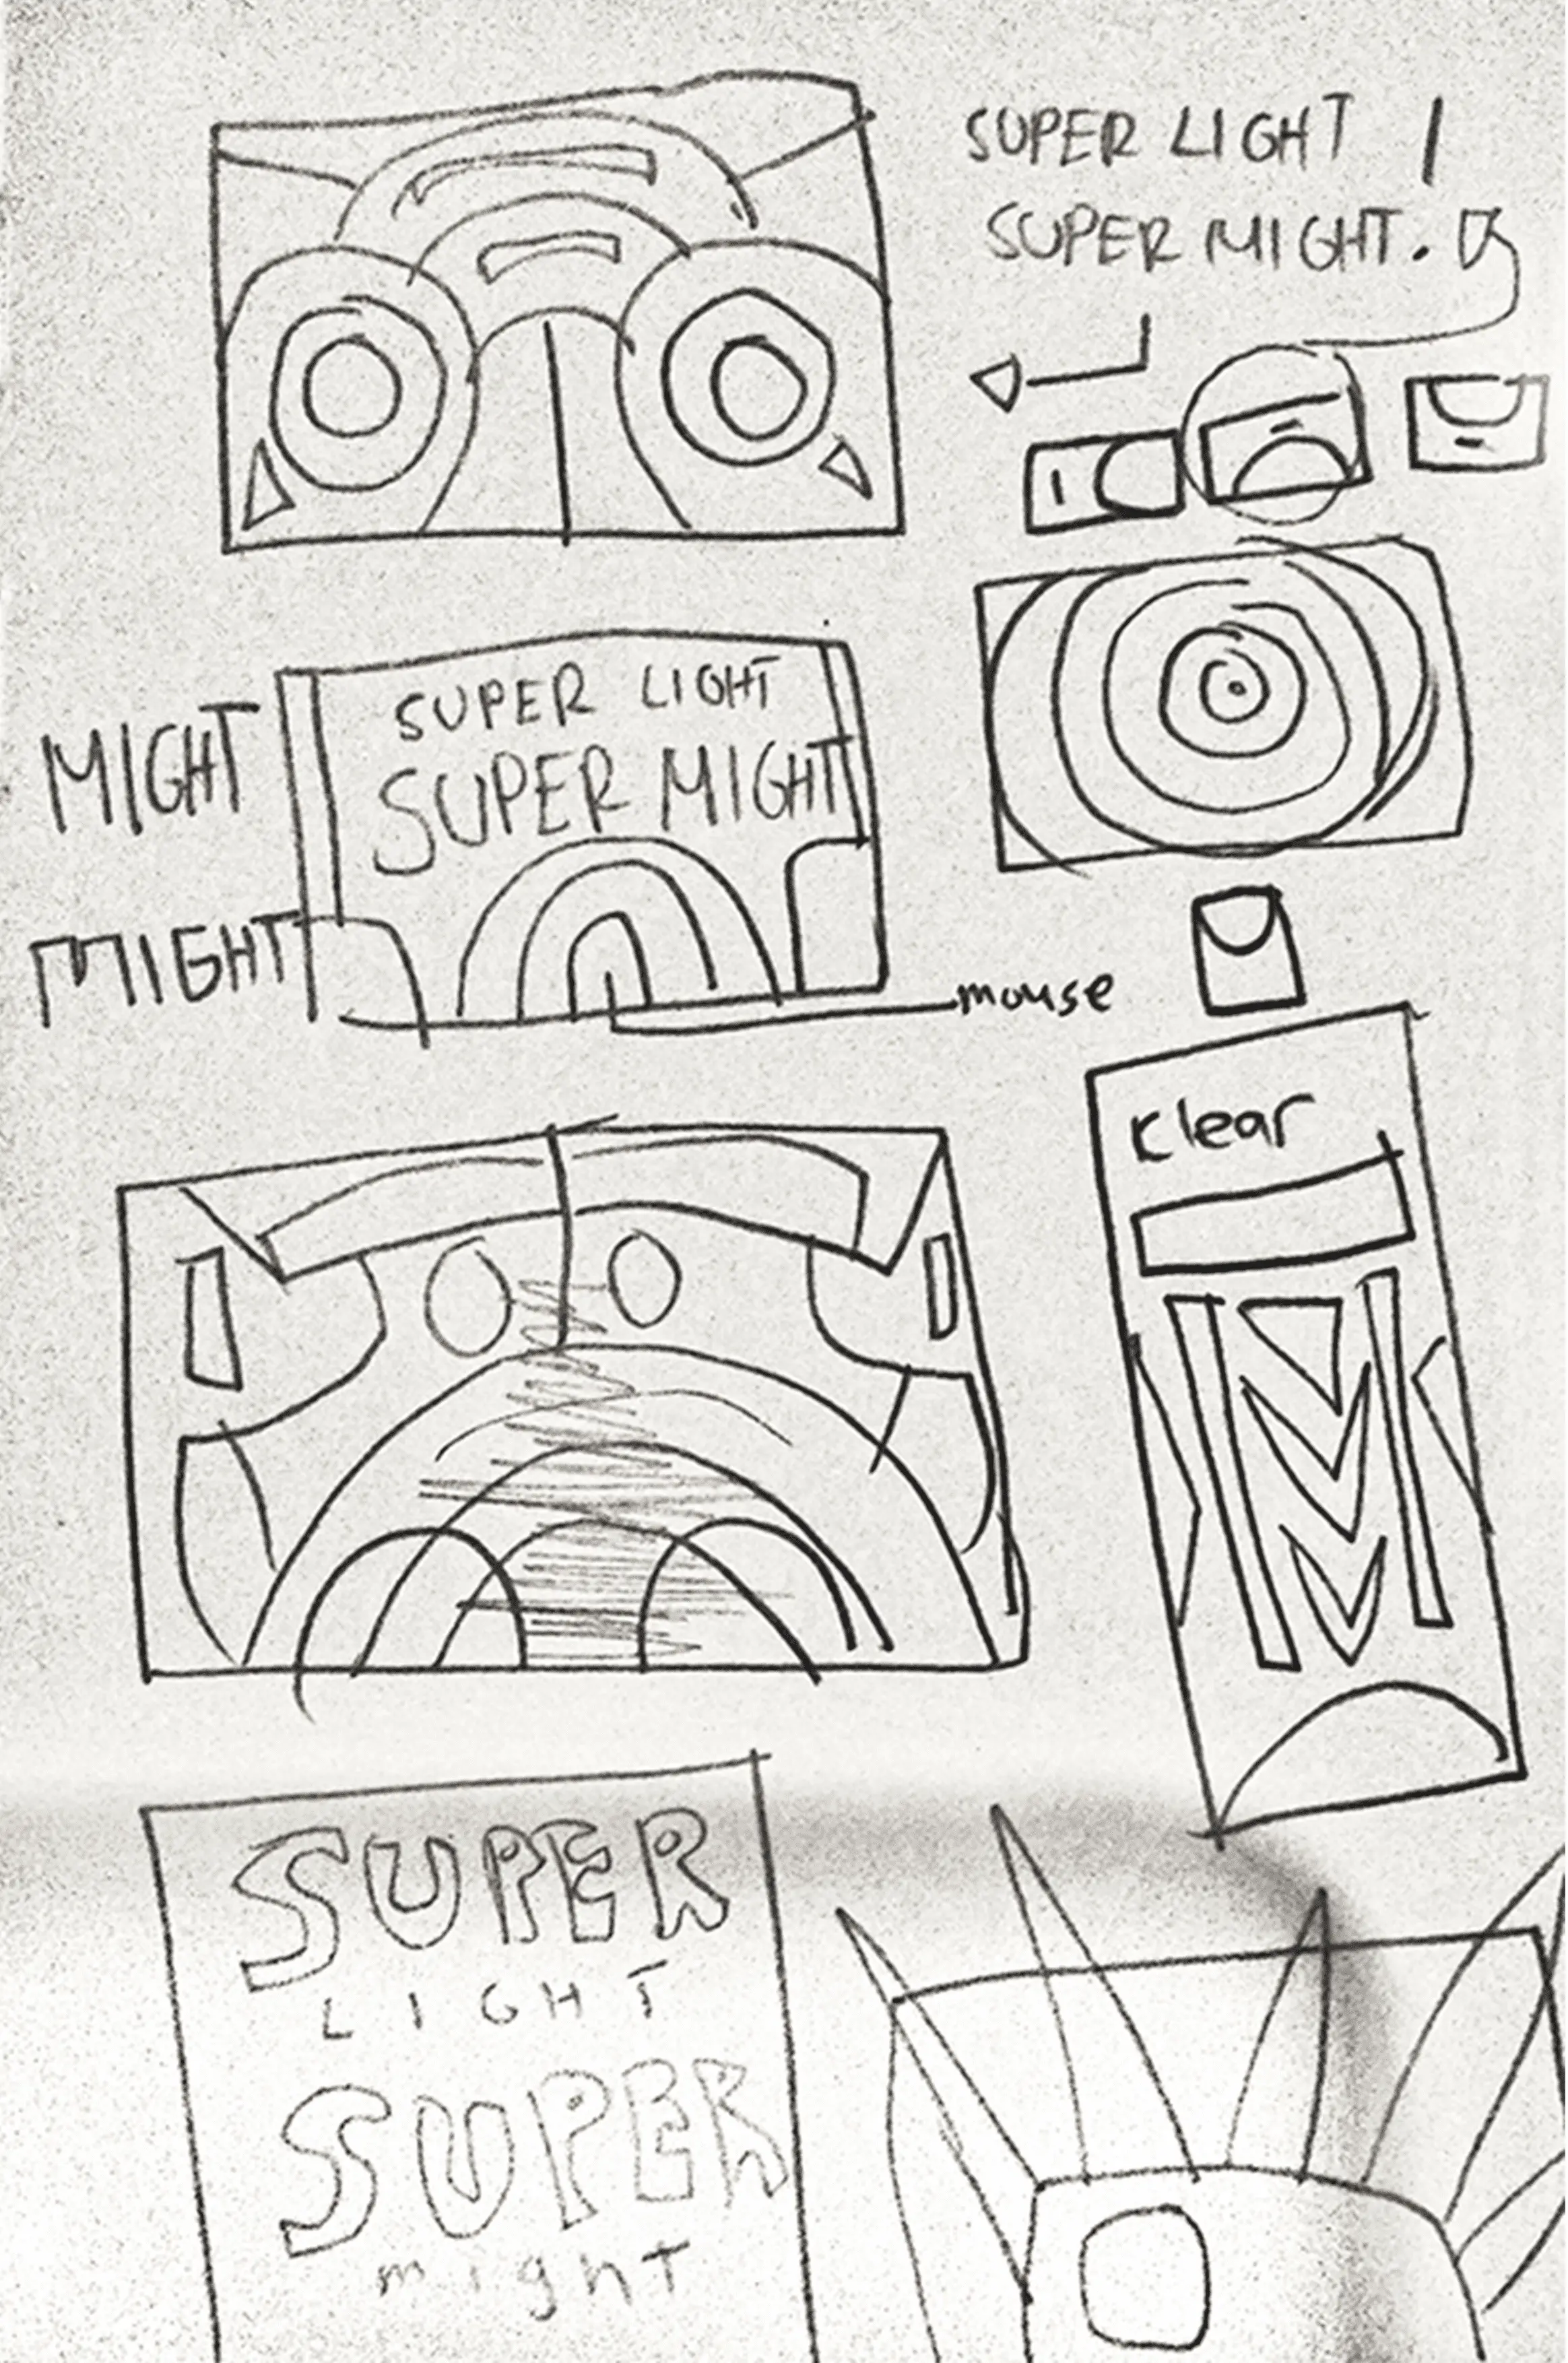 SUPER LIGHT /
SUPER MIGHT.
SUPER LIGHT
SUPER MIGHT
MIGHT
MIGHT
mouse
clear
SUPER
LIGHT
SUPER
might